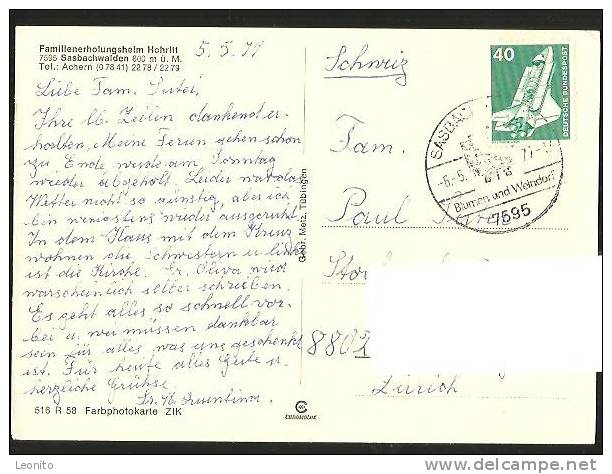 Familienerholungsheim Hohritt
7595 Sasbachwalden 800 m ü. M.
Tel.: Achern (0 78 41) 22 78 / 22 79
5. 5. 77
Liebe Fam. Suter,
Ihre lb. Zeilen dankend er-
halten, Meine Ferien gehen schon
zu Ende werde am Sonntag
wieder abgeholt. Leider war das
Wetter nicht so günstig, aber ich
bin wenigstens wieder ausgeruht.
In dem Haus mit dem Kreuz
wohnen die Schwestern u. links
ist die Kirche. Sr. Oliva wird
warscheinlich selber schreiben.
Es geht alles so schnell vor-
bei u. wir müssen dankbar
sein für alles was uns geschenkt
ist. Für heute alles Gute u.
herzliche Grüsse
Sr. M. Quentina
516 R 58 Farbphotokarte ZIK
Gebr. Metz, Tübingen
Schweiz
Fam.
Paul
8805
Zürich
40
DEUTSCHE BUNDESPOST
-6.-5. 77
Blumen und Weindorf
7595
Leonito
delcampe.net